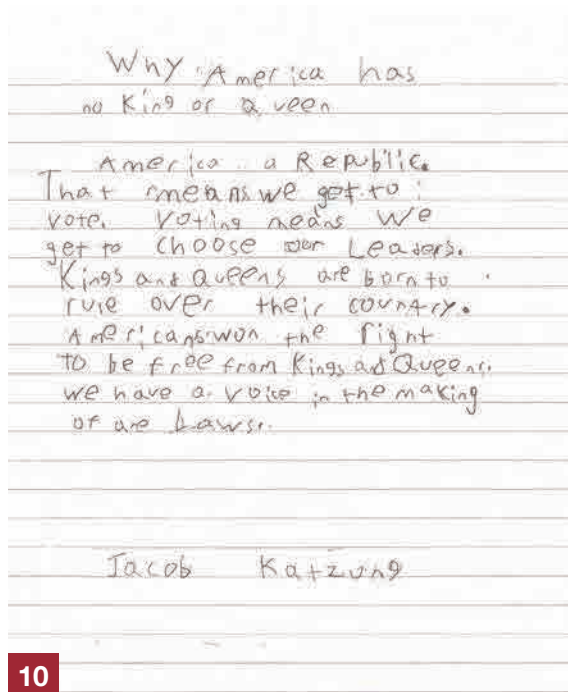 Why America has
no King or Queen
America a Republic.
That means we get to
vote. Voting means we
get to choose our Leaders.
Kings and Queens are born to
rule over their country.
Americans won the right
to be free from Kings and Queens.
we have a voice in the making
of are Laws.
Jacob Katzung
10